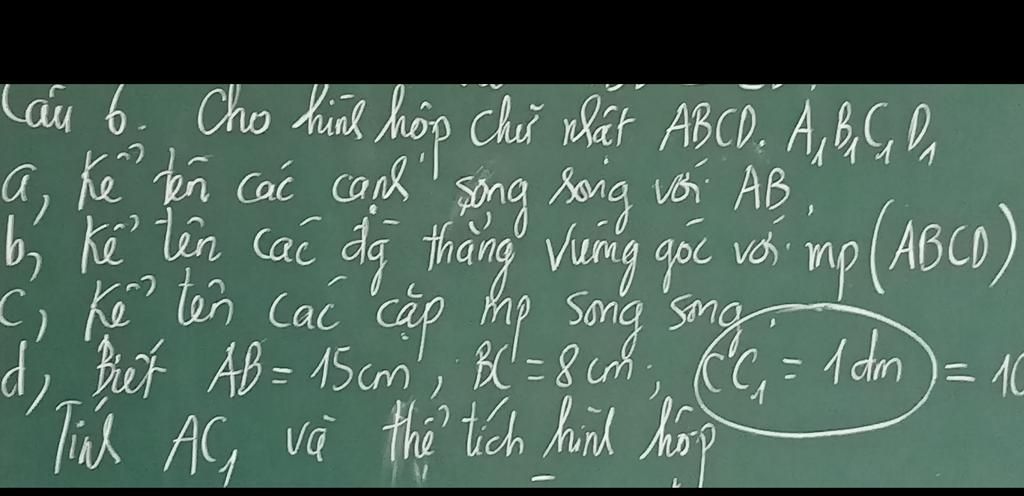 Câu 6. Cho hình hộp chữ nhật ABCD. A₁B₁C₁D₁
a, Kể tên các cạnh song song với AB.
b, Kể tên các đg thẳng vuông góc với mp (ABCD)
c, Kể tên các cặp mp song song.
d, Biết AB = 15cm, BC = 8cm; CC₁ = 1dm = 10
Tính AC₁ và thể tích hình hộp